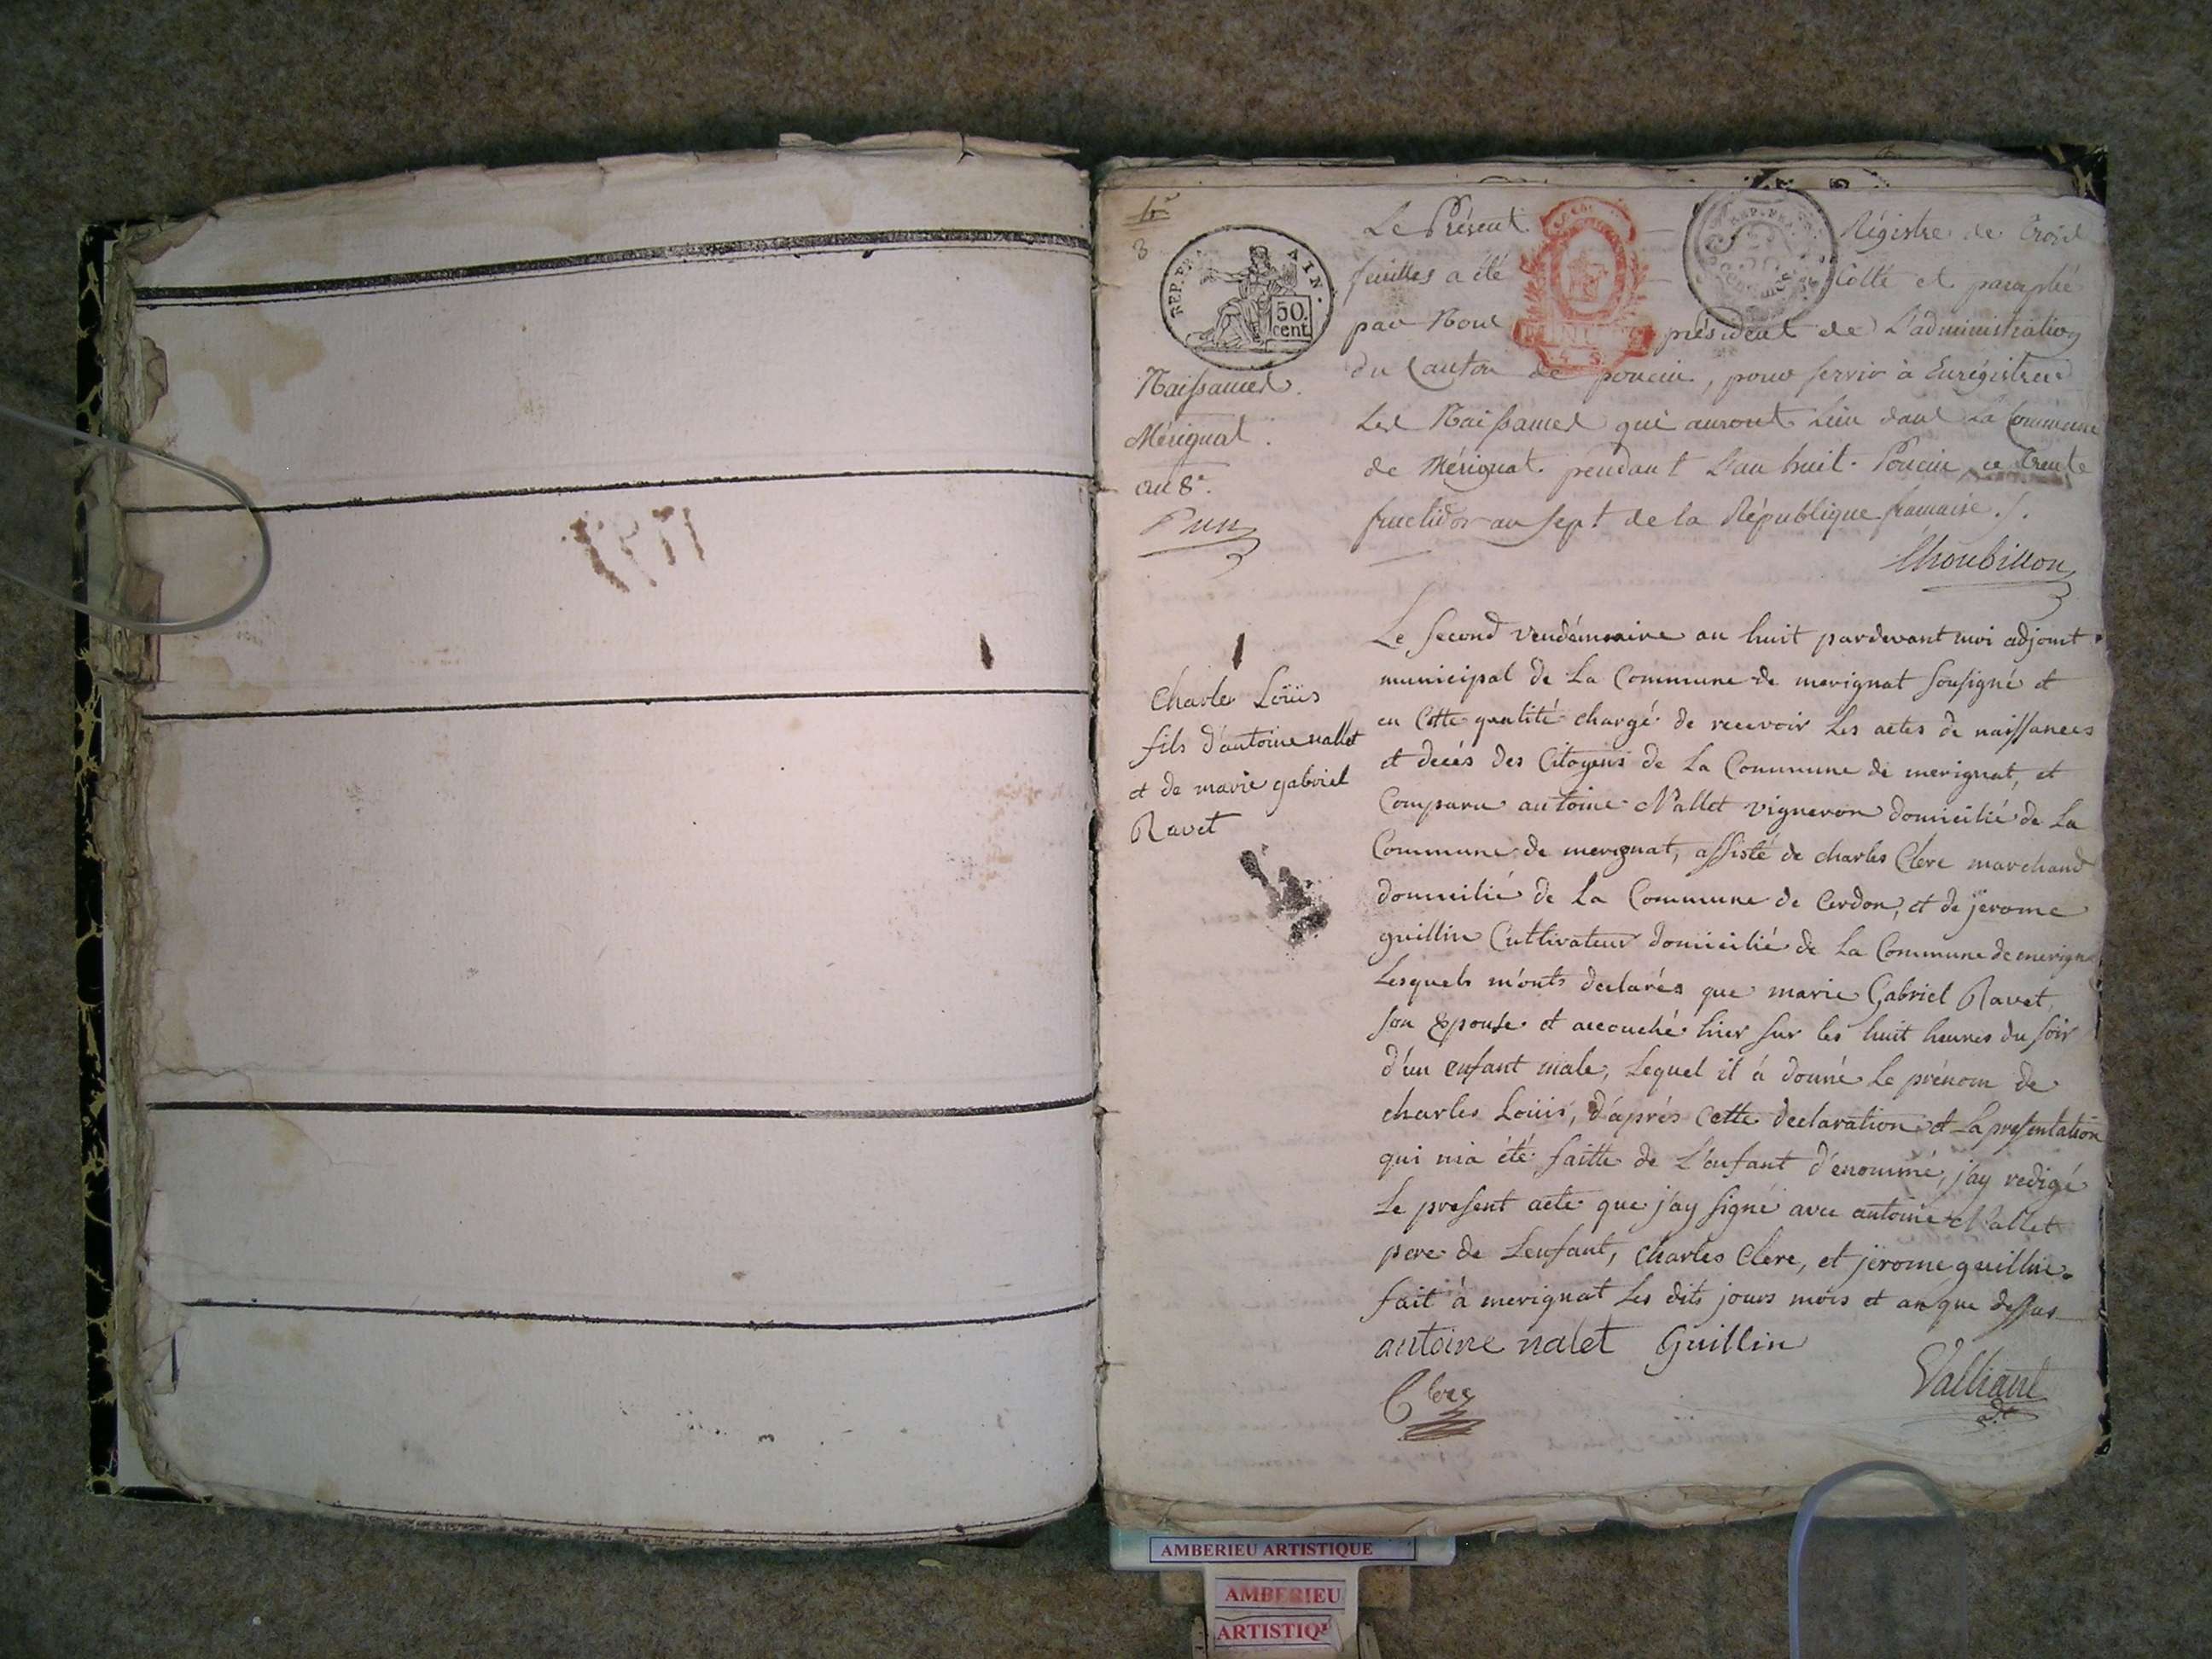 1er
3
REP. FRA. AIN.
50.
cent.
Naissances.
Mérignat.
an 8e.
Le Présent Régistre de trois
feuilles a été Cotté et paraphé
par Nous président de L'administration
du Canton de poncin, pour servir à Enrégistrer
Les Naissances qui auront Lieu dans La Commune
de Mérignat pendant L'an huit. Poncin, ce trente
fructidor an sept de la République francaise ./.
Le second vendémiaire an huit pardevant moi adjoint
municipal de La Commune de merignat sousigné et
en Cette qualité chargé de recevoir Les actes de naissances
et decés des Citoyens de La Commune de merignat, et
Comparu antoine Nallet vigneron domicilié de La
Commune de merignat, assisté de charles Clerc marchand
domicilié de La Commune de Cerdon, et de jerome
guillin Cultivateur domicilié de La Commune de merign
Lesquels m'onts declarés que marie Gabriel Ravet
son Epouse et accouché hier sur les huit heures du soir
d'un enfant male, Lequel il à donné Le prénom de
charles Loüis, d'aprés Cette declaration et La presentation
qui m'a été faitte de L'enfant d'enommé, j'ay redigé
Le present acte que j'ay signé avec antoine Nallet
pere de Lenfant, charles Clerc, et jerome guillin.
fait à merignat Les dits jours mois et an que dessus
antoine nalet Guillin
Clerc
Valliant
adt
1
Charles Loüis
fils d'antoine nallet
et de marie gabriel
Ravet
AMBERIEU ARTISTIQUE
AMBERIEU
ARTISTIQ